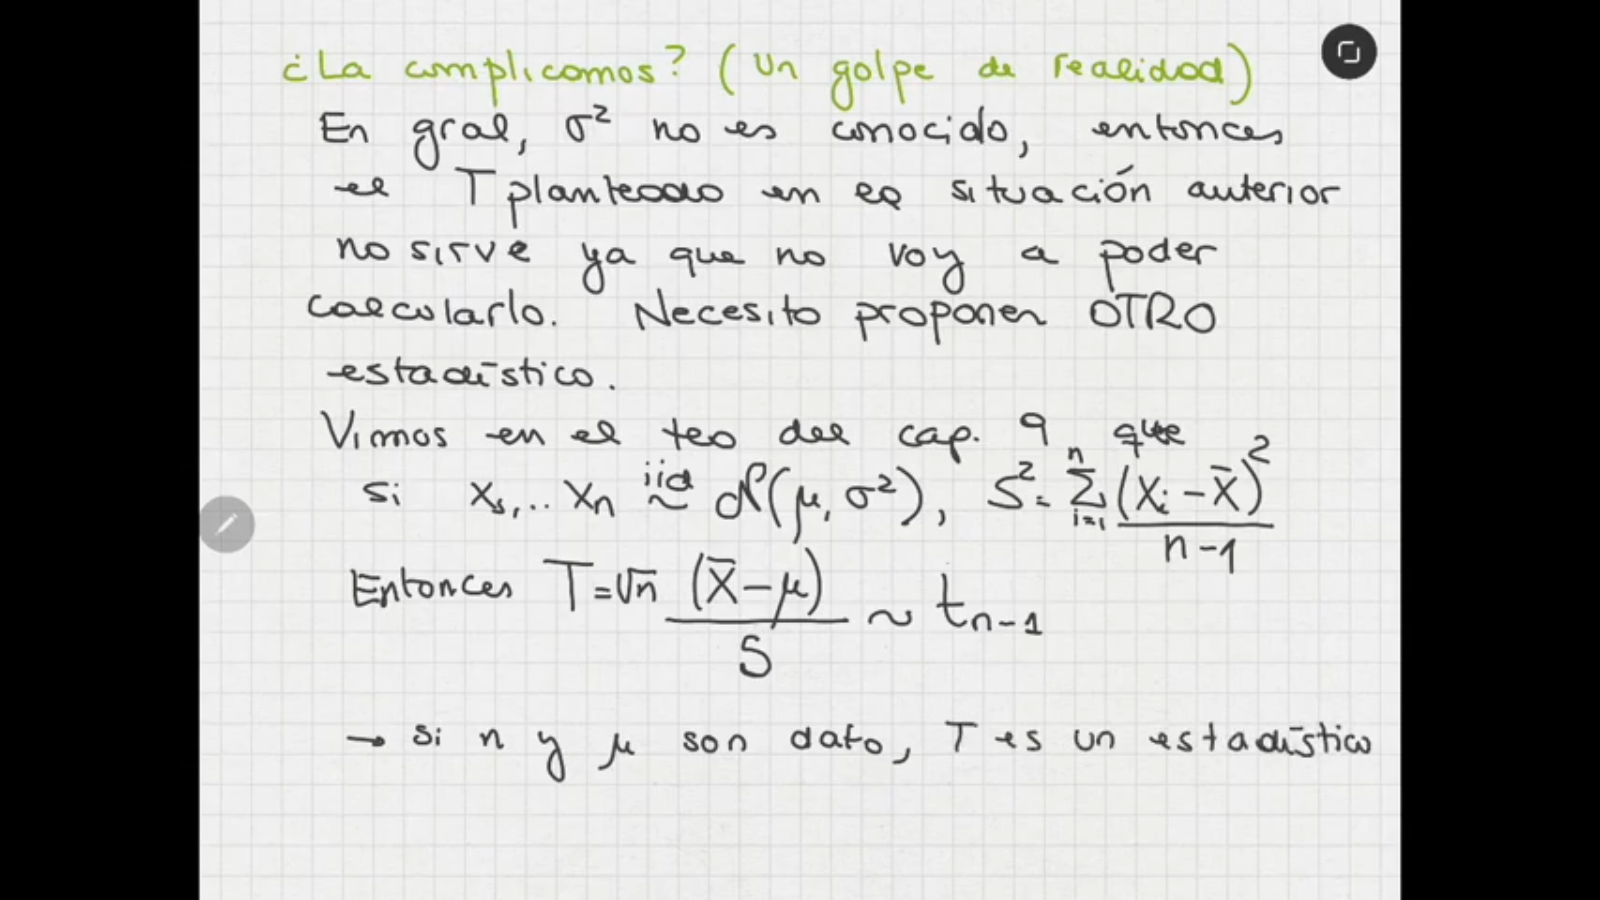 ¿La complicamos? (Un golpe de realidad)
En gral, σ² no es conocido, entonces
el T planteado en la situación anterior
no sirve ya que no voy a poder
calcularlo. Necesito proponer OTRO
estadístico.
Vimos en el teo del cap. 9 que
si X₁,.. Xₙ iid ~ N(μ, σ²), S² = Σᵢ₌₁ⁿ (Xᵢ - X̄)² / n-1
Entonces T = √n (X̄ - μ) / S ~ tₙ₋₁
→ si n y μ son dato, T es un estadístico